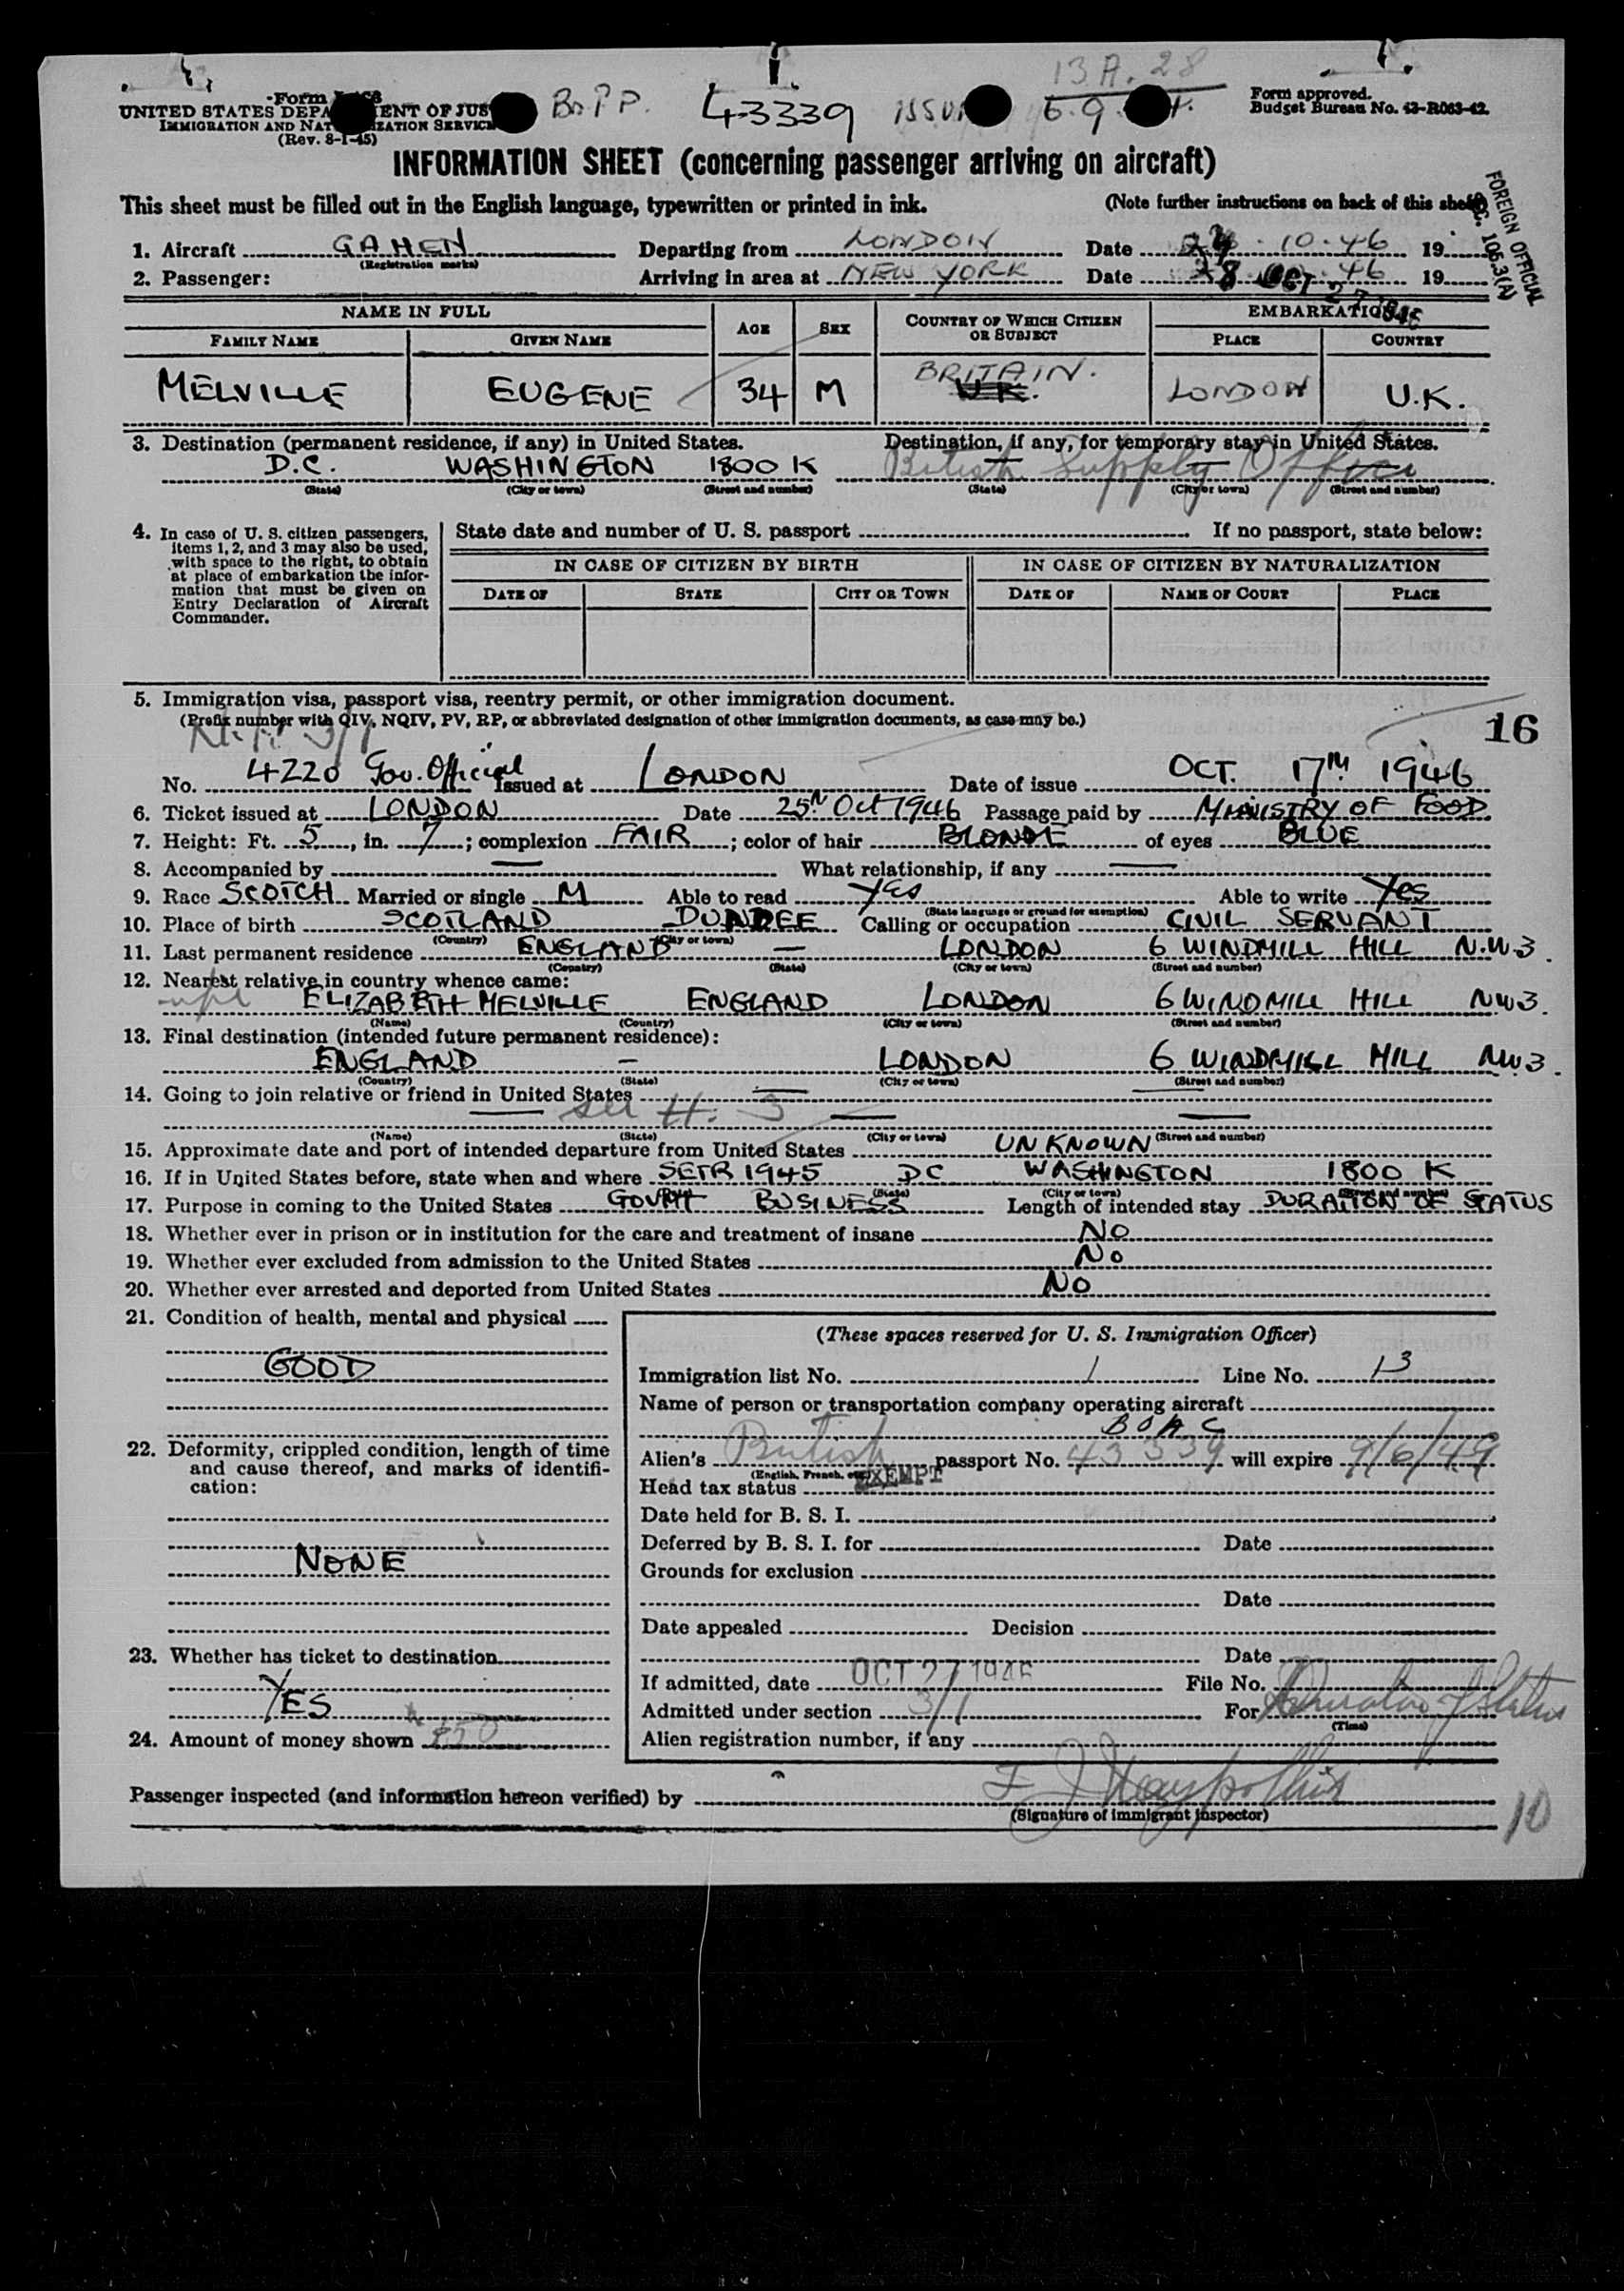 13 A. 28
Form
UNITED STATES DEPA ENT OF JUS Br. P P. 43339 ISSU 6. 9. Form approved.
IMMIGRATION AND NAT ZATION SERVICE Budget Bureau No. 43-R063-42.
(Rev. 8-1-45)
INFORMATION SHEET (concerning passenger arriving on aircraft)
This sheet must be filled out in the English language, typewritten or printed in ink. (Note further instructions on back of this sheet)
FOREIGN OFFICIAL
SEC. 105.3(A)
1. Aircraft GAHEN Departing from LONDON Date 10.46 19
(Registration marks)
2. Passenger: Arriving in area at NEW YORK Date 28 OCT 46 19
27 1946
NAME IN FULL AGE SEX COUNTRY OF WHICH CITIZEN OR SUBJECT EMBARKATION
FAMILY NAME GIVEN NAME PLACE COUNTRY
MELVILLE EUGENE 34 M BRITAIN. U.K. LONDON U.K.
3. Destination (permanent residence, if any) in United States. Destination, if any, for temporary stay in United States.
D.C. WASHINGTON 1800 K British Supply Office
(State) (City or town) (Street and number) (State) (City or town) (Street and number)
4. In case of U. S. citizen passengers, items 1, 2, and 3 may also be used, with space to the right, to obtain at place of embarkation the information that must be given on Entry Declaration of Aircraft Commander.
State date and number of U. S. passport If no passport, state below:
IN CASE OF CITIZEN BY BIRTH IN CASE OF CITIZEN BY NATURALIZATION
DATE OF STATE CITY OR TOWN DATE OF NAME OF COURT PLACE
5. Immigration visa, passport visa, reentry permit, or other immigration document.
(Prefix number with QIV, NQIV, PV, RP, or abbreviated designation of other immigration documents, as case may be.)
3/1
16
No. 4220 Gov. Official Issued at LONDON Date of issue OCT. 17TH 1946
6. Ticket issued at LONDON Date 25 Oct 1946 Passage paid by MINISTRY OF FOOD
7. Height: Ft. 5, in. 7; complexion FAIR; color of hair BLONDE of eyes BLUE
8. Accompanied by — What relationship, if any —
9. Race SCOTCH Married or single M Able to read Yes Able to write Yes
(State language or ground for exemption)
10. Place of birth SCOTLAND DUNDEE Calling or occupation CIVIL SERVANT
(Country) (City or town)
11. Last permanent residence ENGLAND — LONDON 6 WINDMILL HILL N.W.3.
(Country) (State) (City or town) (Street and number)
12. Nearest relative in country whence came:
wife ELIZABETH MELVILLE ENGLAND LONDON 6 WINDMILL HILL NW3.
(Name) (Country) (City or town) (Street and number)
13. Final destination (intended future permanent residence):
ENGLAND — LONDON 6 WINDMILL HILL NW3.
(Country) (State) (City or town) (Street and number)
14. Going to join relative or friend in United States —
— see #. 3 — —
(Name) (State) (City or town) (Street and number)
15. Approximate date and port of intended departure from United States UNKNOWN
16. If in United States before, state when and where SETR 1945 DC WASHINGTON 1800 K
(State) (City or town) (Street and number)
17. Purpose in coming to the United States GOVMT BUSINESS Length of intended stay DURATION OF STATUS
18. Whether ever in prison or in institution for the care and treatment of insane NO
19. Whether ever excluded from admission to the United States NO
20. Whether ever arrested and deported from United States NO
21. Condition of health, mental and physical
GOOD
22. Deformity, crippled condition, length of time and cause thereof, and marks of identification:
NONE
23. Whether has ticket to destination
YES
24. Amount of money shown $50
(These spaces reserved for U. S. Immigration Officer)
Immigration list No. 1 Line No. 13
Name of person or transportation company operating aircraft
BOAC
Alien's British passport No. 43339 will expire 9/6/49
(English, French, etc.)
Head tax status EXEMPT
Date held for B. S. I.
Deferred by B. S. I. for Date
Grounds for exclusion
Date
Date appealed Decision
Date
If admitted, date OCT 27 1946 File No.
Admitted under section 3/1 For Duration of Status
(Time)
Alien registration number, if any
Passenger inspected (and information hereon verified) by
(Signature of immigrant inspector)
10